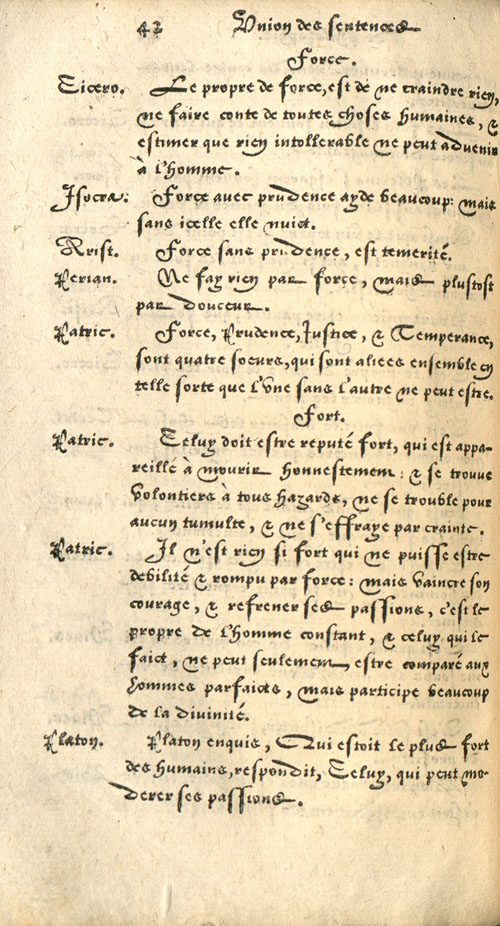 42 Vnion des sentences
Force.
Cicero. Le propre de force, est de ne craindre rien,
ne faire conte de toutes choses humaines, &
estimer que rien intollerable ne peut advenir
à l'homme.
Isocra: Force avec prudence ayde beaucoup: mais
sans icelle elle nuict.
Arist. Force sans prudence, est temerité.
Perian. Ne fay rien par force, mais plustost
par douceur.
Patric. Force, Prudence, Justice, & Temperance,
sont quatre soeurs, qui sont aliees ensemble en
telle sorte que l'vne sans l'autre ne peut estre.
Fort.
Patric. Celuy doit estre reputé fort, qui est appa-
reillé à mourir honnestement: & se trouve
volontiers à tous hazards, ne se trouble pour
aucun tumulte, & ne s'effraye par crainte.
Patric. Il n'est rien si fort qui ne puisse estre
debilité & rompu par force: mais vaincre son
courage, & refrener ses passions, c'est le
propre de l'homme constant, & celuy qui le
faict, ne peut seulement estre comparé aux
hommes parfaicts, mais participe beaucoup
de la divinité.
Platon. Platon enquis, Qui estoit le plus fort
des humains, respondit, Celuy, qui peut mo-
derer ses passions.